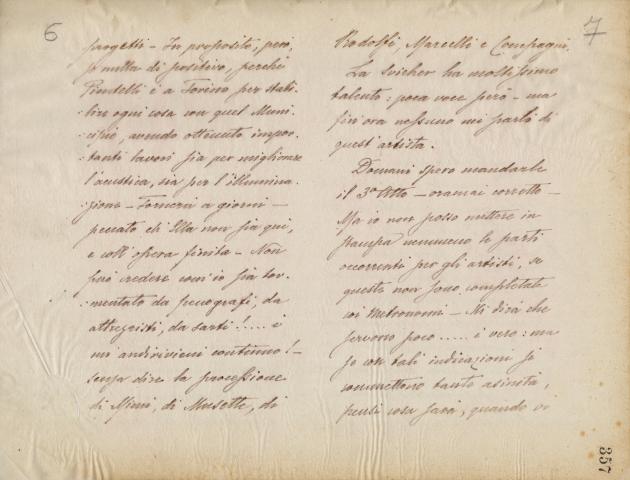 6
progetti - In proposito, però,
nulla di positivo, perchè
Piontelli è a Torino per stabi-
lire ogni cosa con quel Muni-
cipio, avendo ottenuto impor-
tanti lavori sia per migliorare
l'acustica, sia per l'illumina-
zione - Tornerà a giorni -
peccato ch'Ella non sia qui,
e coll'opera finita - Non
può credere com'io sia tor-
mentato da pecografi, da
attrezzisti, da sarti!..... è
un andirivieni continuo! -
senza dire la processione
di Mimì, di Musette, di
7
Rodolfi, Marcelli e Compagni.
La Svicher ha moltissimo
talento: poca voce però - ma
fin'ora nessuno mi parlò di
quest'artista.
Domani spero mandarle
il 3º Atto - oramai corretto -
Ma io non posso mettere in
stampa nemmeno le parti
occorrenti per gli artisti, se
queste non sono completate
coi Metronomi - Mi dirà che
servono poco..... è vero: ma
se con tali indicazioni si
commettono tante asinità,
pensi cosa sarà, quando vi
357